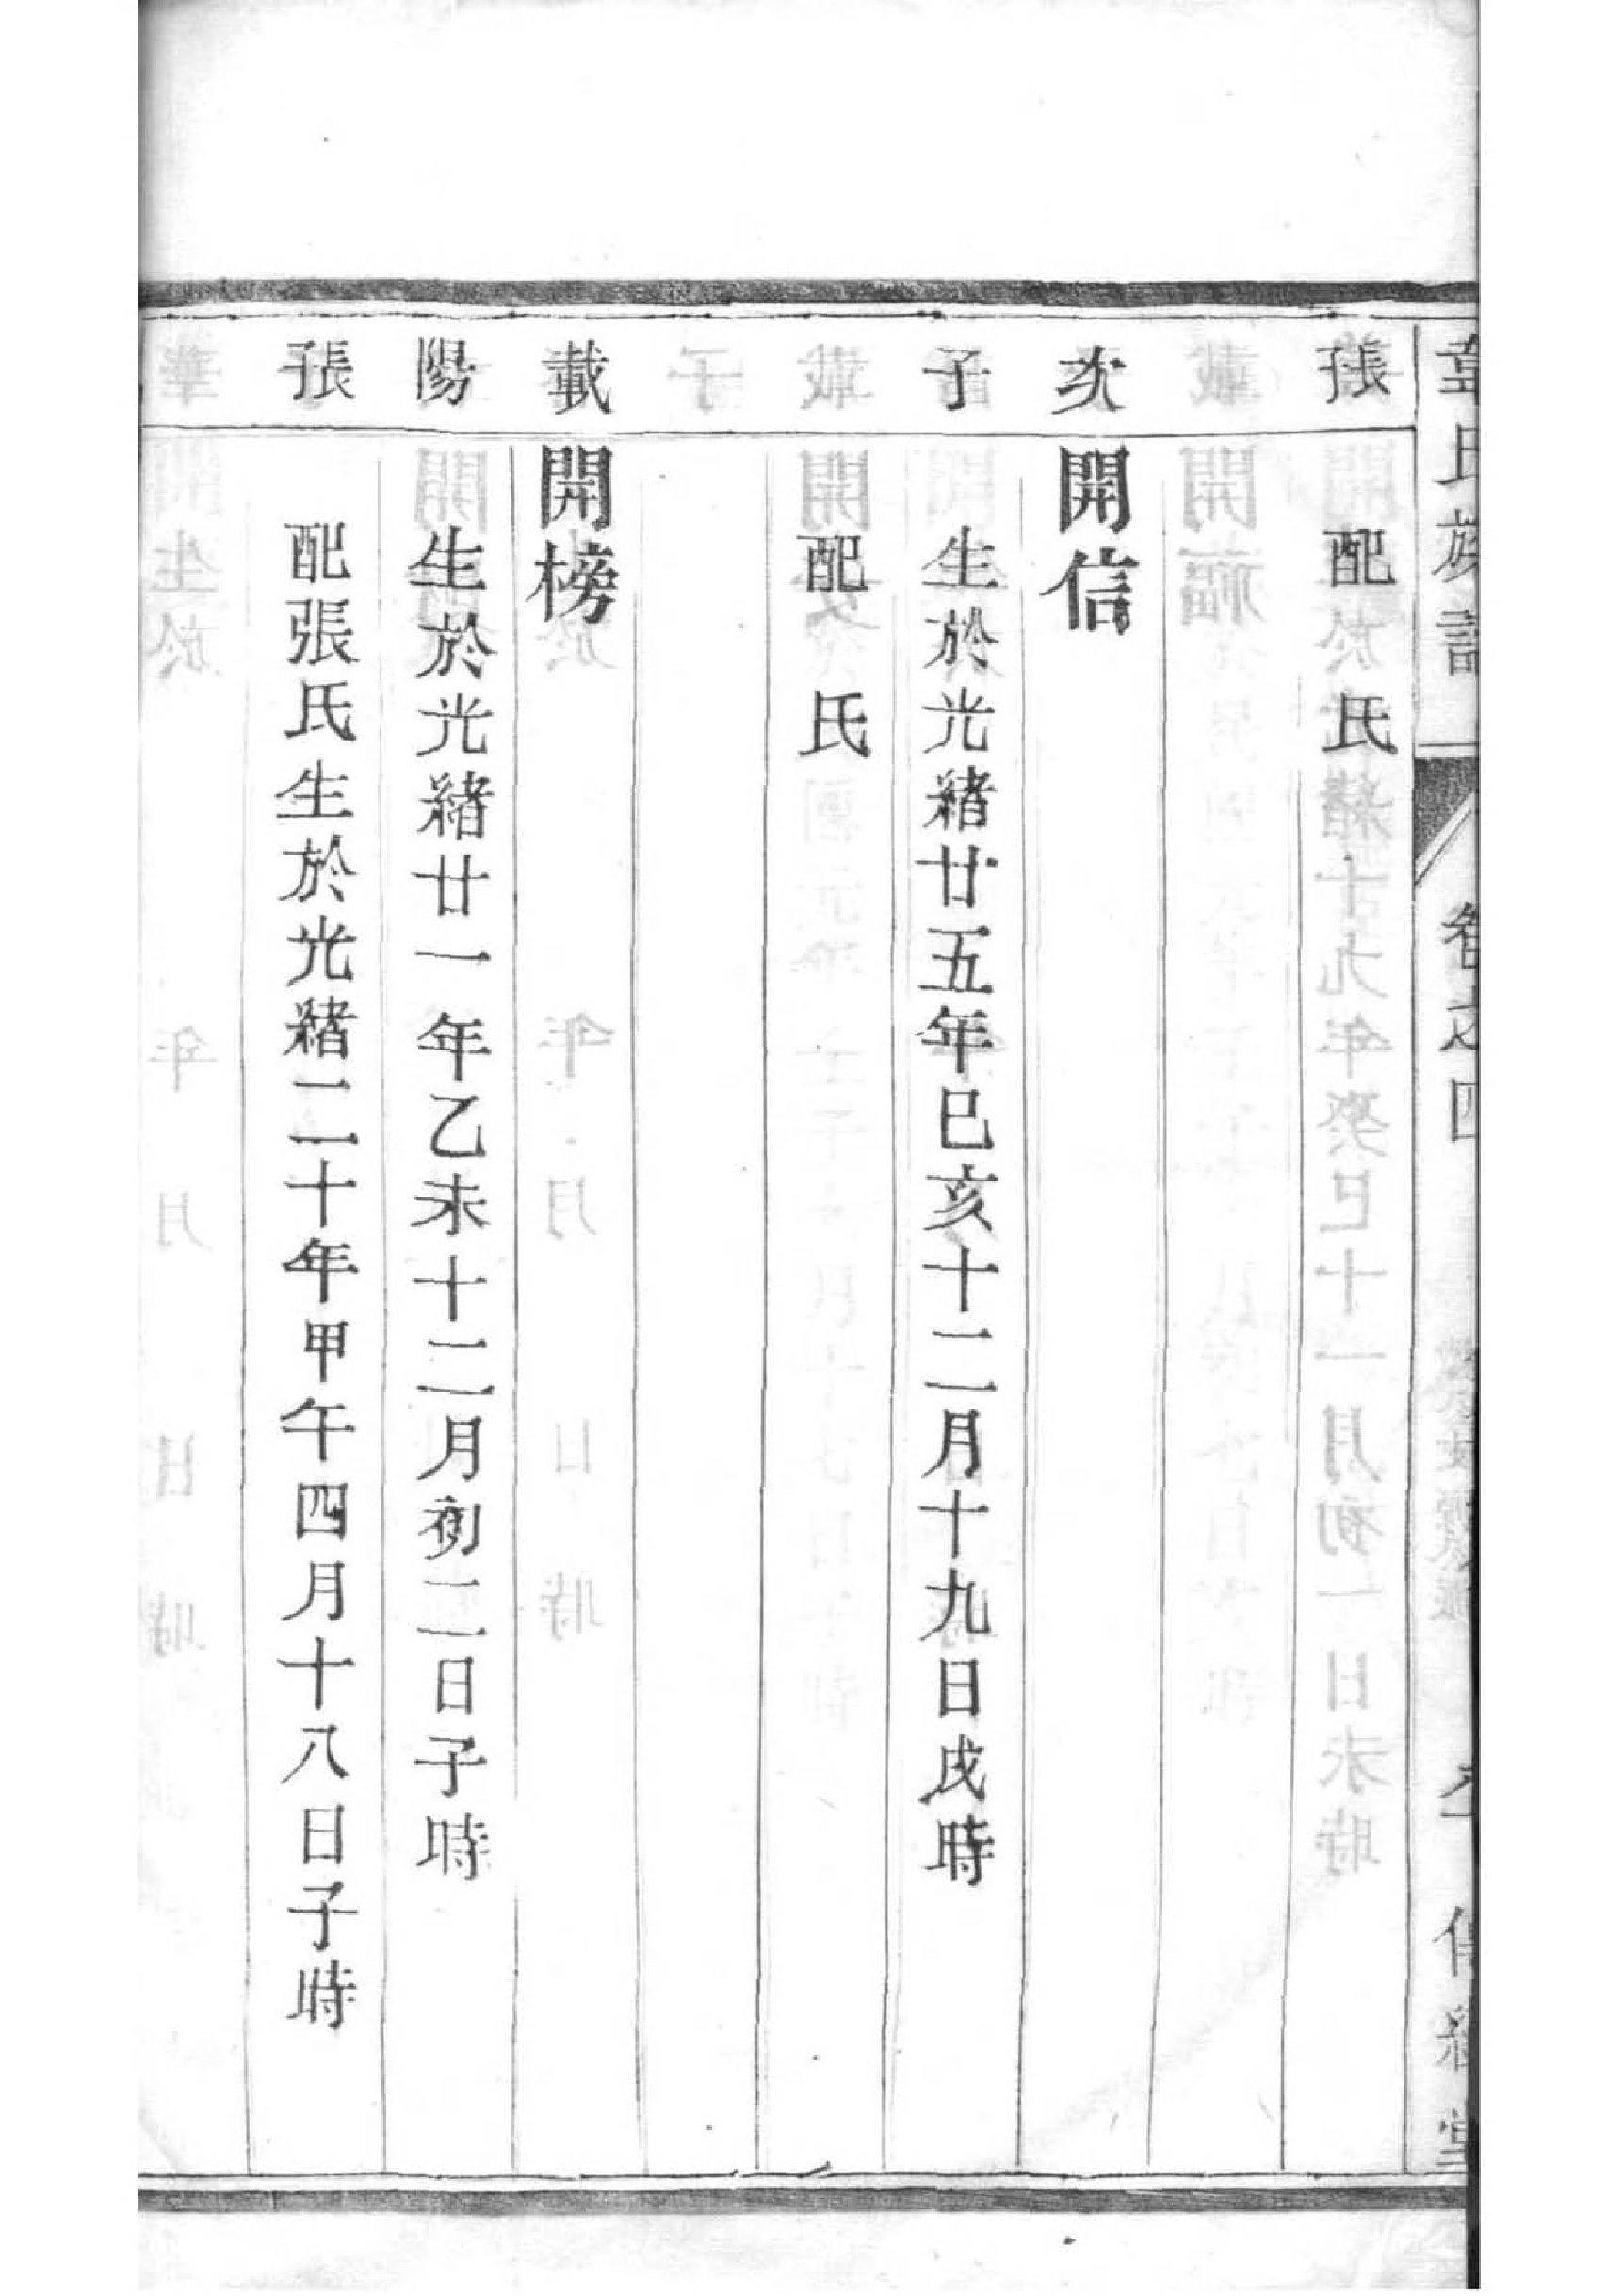 氏族譜 卷之四
張 配 氏
次 開信
子 生於光緒廿五年己亥十二月十九日戌時
配 氏
載 開榜
陽 生於光緒廿一年乙未十二月初二日子時
張 配張氏生於光緒二十年甲午四月十八日子時